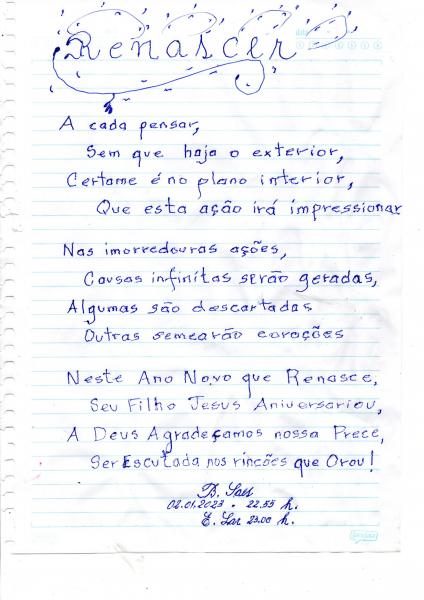 Renascer
A cada pensar,
Sem que haja o exterior,
Certame é no plano interior,
Que esta ação irá impressionar
Nas imorredouras ações,
Causas infinitas serão geradas,
Algumas são descartadas
Outras semearão corações
Neste Ano Novo que Renasce,
Seu Filho Jesus Aniversariou,
A Deus Agradeçamos nossa Prece,
Ser Escutada nos rincões que Orou!
B. Saes
02.01.2023 . 22.55 h.
E. Lar 23.00 h.